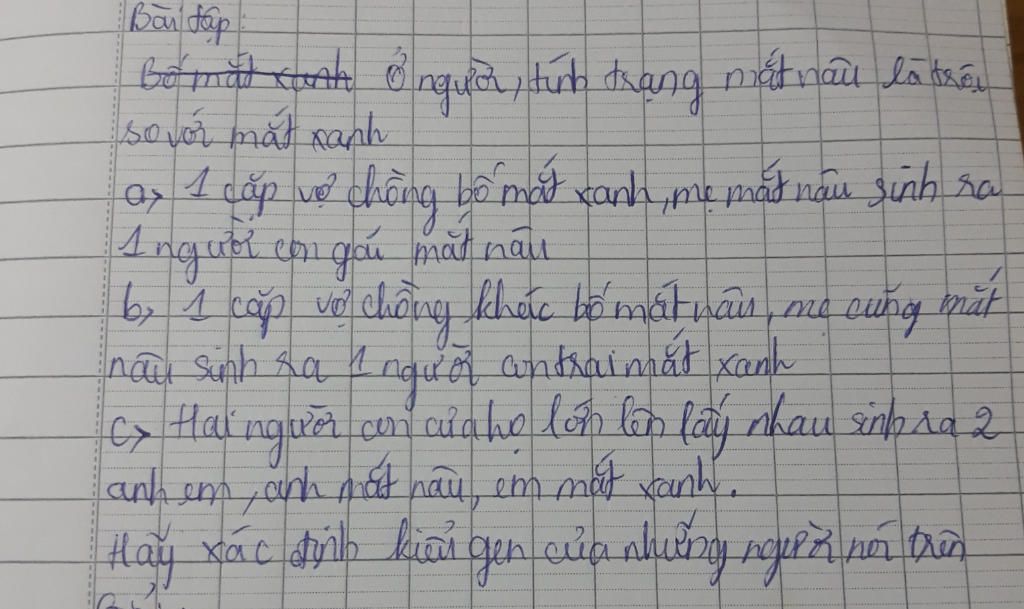 Bài tập:
Bố mắt xanh Ở người, tính trạng mắt nâu là trội
so với mắt xanh
a, 1 cặp vợ chồng bố mắt xanh, mẹ mắt nâu sinh ra
1 người con gái mắt nâu
b, 1 cặp vợ chồng khác bố mắt nâu, mẹ cũng mắt
nâu sinh ra 1 người con trai mắt xanh
c, Hai người con của họ lớn lên lấy nhau sinh ra 2
anh em, anh mắt nâu, em mắt xanh.
Hãy xác định kiểu gen của những người nói trên